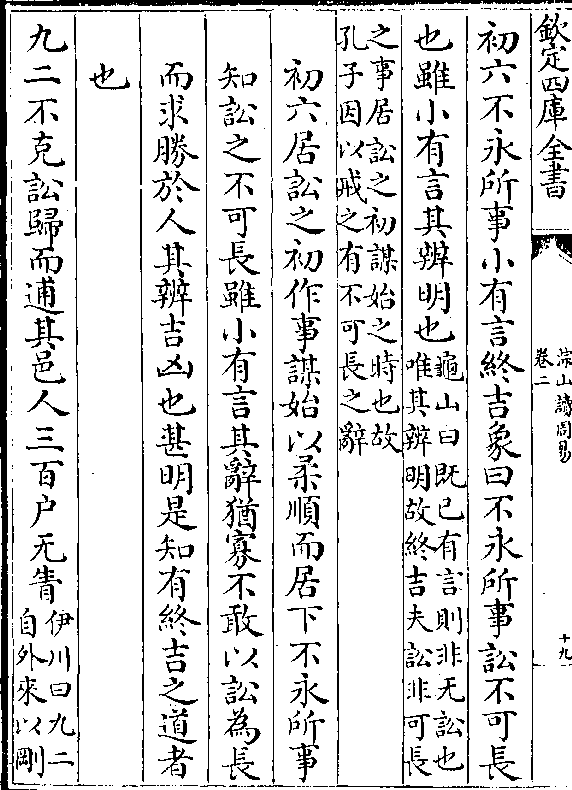 欽定四庫全書
淙山讀周易
卷二
十九
初六不永所事小有言終吉象曰不永所事訟不可長
也雖小有言其辨明也
龜山曰既已有言則非无訟也
唯其辨明故終吉夫訟非可長
之事居訟之初謀始之時也故
孔子因以戒之有不可長之辭
初六居訟之初作事謀始以柔順而居下不永所事
知訟之不可長雖小有言其辭猶寡不敢以訟為長
而求勝於人其辨吉凶也甚明是知有終吉之道者
也
九二不克訟歸而逋其邑人三百户无眚
伊川曰九二
自外來以剛